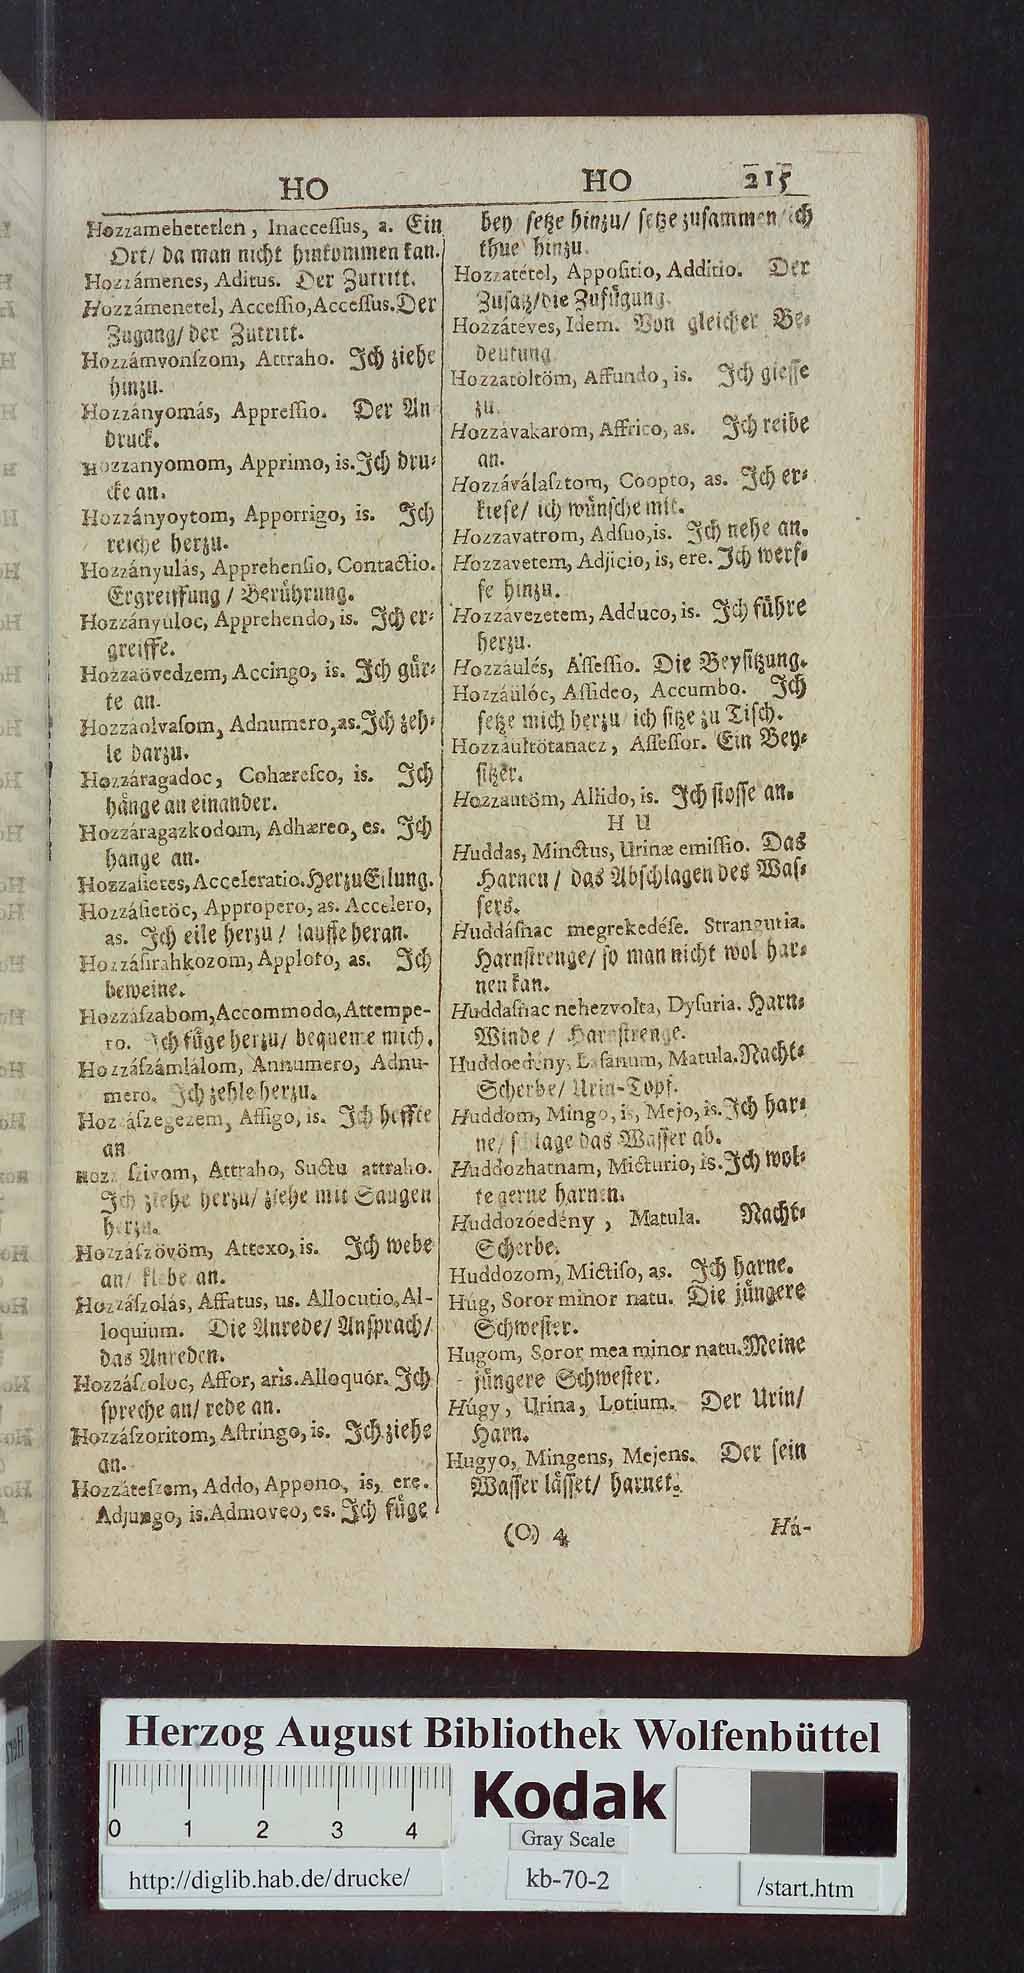 HO
Hozzamehetetlen, Inaccessus, a. Ein
Ort/ da man nicht hinkommen kan.
Hozzámenes, Aditus. Der Zutritt.
Hozzámenetel, Accessio, Accessus. Der
Zugang/ der Zutritt.
Hozzámvonſzom, Attraho. Ich ziehe
hinzu.
Hozzányomás, Appreſſio. Der An
druck.
Hozzanyomom, Apprimo, is. Ich dru-
cke an.
Hozzányoytom, Apporrigo, is. Ich
reiche herzu.
Hozzányulás, Apprehenſio, Contactio.
Ergreiffung / Berührung.
Hozzányuloc, Apprehendo, is. Ich er-
greiffe.
Hozzaövedzem, Accingo, is. Ich gür-
te an.
Hozzáolvaſom, Adnumero, as. Ich zeh-
le darzu.
Hozzáragadoc, Cohæreſco, is. Ich
hänge an einander.
Hozzáragazkodom, Adhæreo, es. Ich
hange an.
Hozzaſietes, Acceleratio. Herzu Eilung.
Hozzáſietöc, Appropero, as. Accelero,
as. Ich eile herzu / lauffe heran.
Hozzáſirahkozom, Apploro, as. Ich
beweine.
Hozzáſzabom, Accommodo, Attempe-
ro. Ich füge herzu/ bequeme mich.
Hozzáſzámlálom, Annumero, Adnu-
mero. Ich zehle herzu.
Hozzáſzegezem, Affigo, is. Ich heffte
an
ſzivom, Attraho, Suctu attraho.
Ich ziehe herzu/ ziehe mit Saugen
herzu.
Hozzáſzövöm, Attexo, is. Ich webe
an/ klebe an.
Hozzáſzolás, Affatus, us. Allocutio, Al-
loquium. Die Anrede/ Anſprach/
das Anreden.
Hozzáſzoloc, Affor, aris. Alloquór. Ich
ſpreche an/ rede an.
Hozzáſzoritom, Aſtringo, is. Ich ziehe
an.
Hozzáteſzem, Addo, Appono, is, ere.
Adjungo, is. Admoveo, es. Ich füge
HO 215
bey ſetze hinzu/ ſetze zuſammen/ ich
thue hinzu.
Hozzatétel, Appoſitio, Additio. Der
Zuſatz/ die Zufügung.
Hozzáteves, Idem. Von gleicher Be-
deutung.
Hozzatöltöm, Affundo, is. Ich gieſſe
zu.
Hozzávakarom, Affrico, as. Ich reibe
an.
Hozzáválaſztom, Coopto, as. Ich er-
kieſe/ ich wünſche mit.
Hozzavatrom, Adſuo, is. Ich nehe an.
Hozzavetem, Adjicio, is, ere. Ich werf-
fe hinzu.
Hozzávezetem, Adduco, is. Ich führe
herzu.
Hozzáulés, Aſſeſſio. Die Beyſitzung.
Hozzáülóc, Aſſideo, Accumbo. Ich
ſetze mich herzu/ ich ſitze zu Tiſch.
Hozzáultötanacz, Aſſeſſor. Ein Bey-
ſitzer.
Hozzautöm, Allido, is. Ich ſtoſſe an.
HU
Huddas, Minctus, Urinæ emiſſio. Das
Harnen / das Abſchlagen des Waſ-
ſers.
Huddáſnac megrekedéſe. Stranguria.
Harnſtrenge/ ſo man nicht wol har-
nen kan.
Huddaſnac nehezvolta, Dyſuria. Harn-
Winde / Harnſtrenge.
Huddoedény, Laſanum, Matula. Nacht-
Scherbe/ Urin-Topf.
Huddom, Mingo, is, Mejo, is. Ich har-
ne/ ſchlage das Waſſer ab.
Huddozhatnam, Micturio, is. Ich wol-
te gerne harnen.
Huddozóedény, Matula. Nacht-
Scherbe.
Huddozom, Mictiſo, as. Ich harne.
Húg, Soror minor natu. Die jüngere
Schweſter.
Hugom, Soror mea minor natu. Meine
jüngere Schweſter.
Húgy, Urina, Lotium. Der Urin/
Harn.
Hugyo, Mingens, Mejens. Der ſein
Waſſer läſſet/ harnet.
(O) 4 Há-
Herzog August Bibliothek Wolfenbüttel
Kodak
0 1 2 3 4
Gray Scale
http://diglib.hab.de/drucke/ kb-70-2 /start.htm